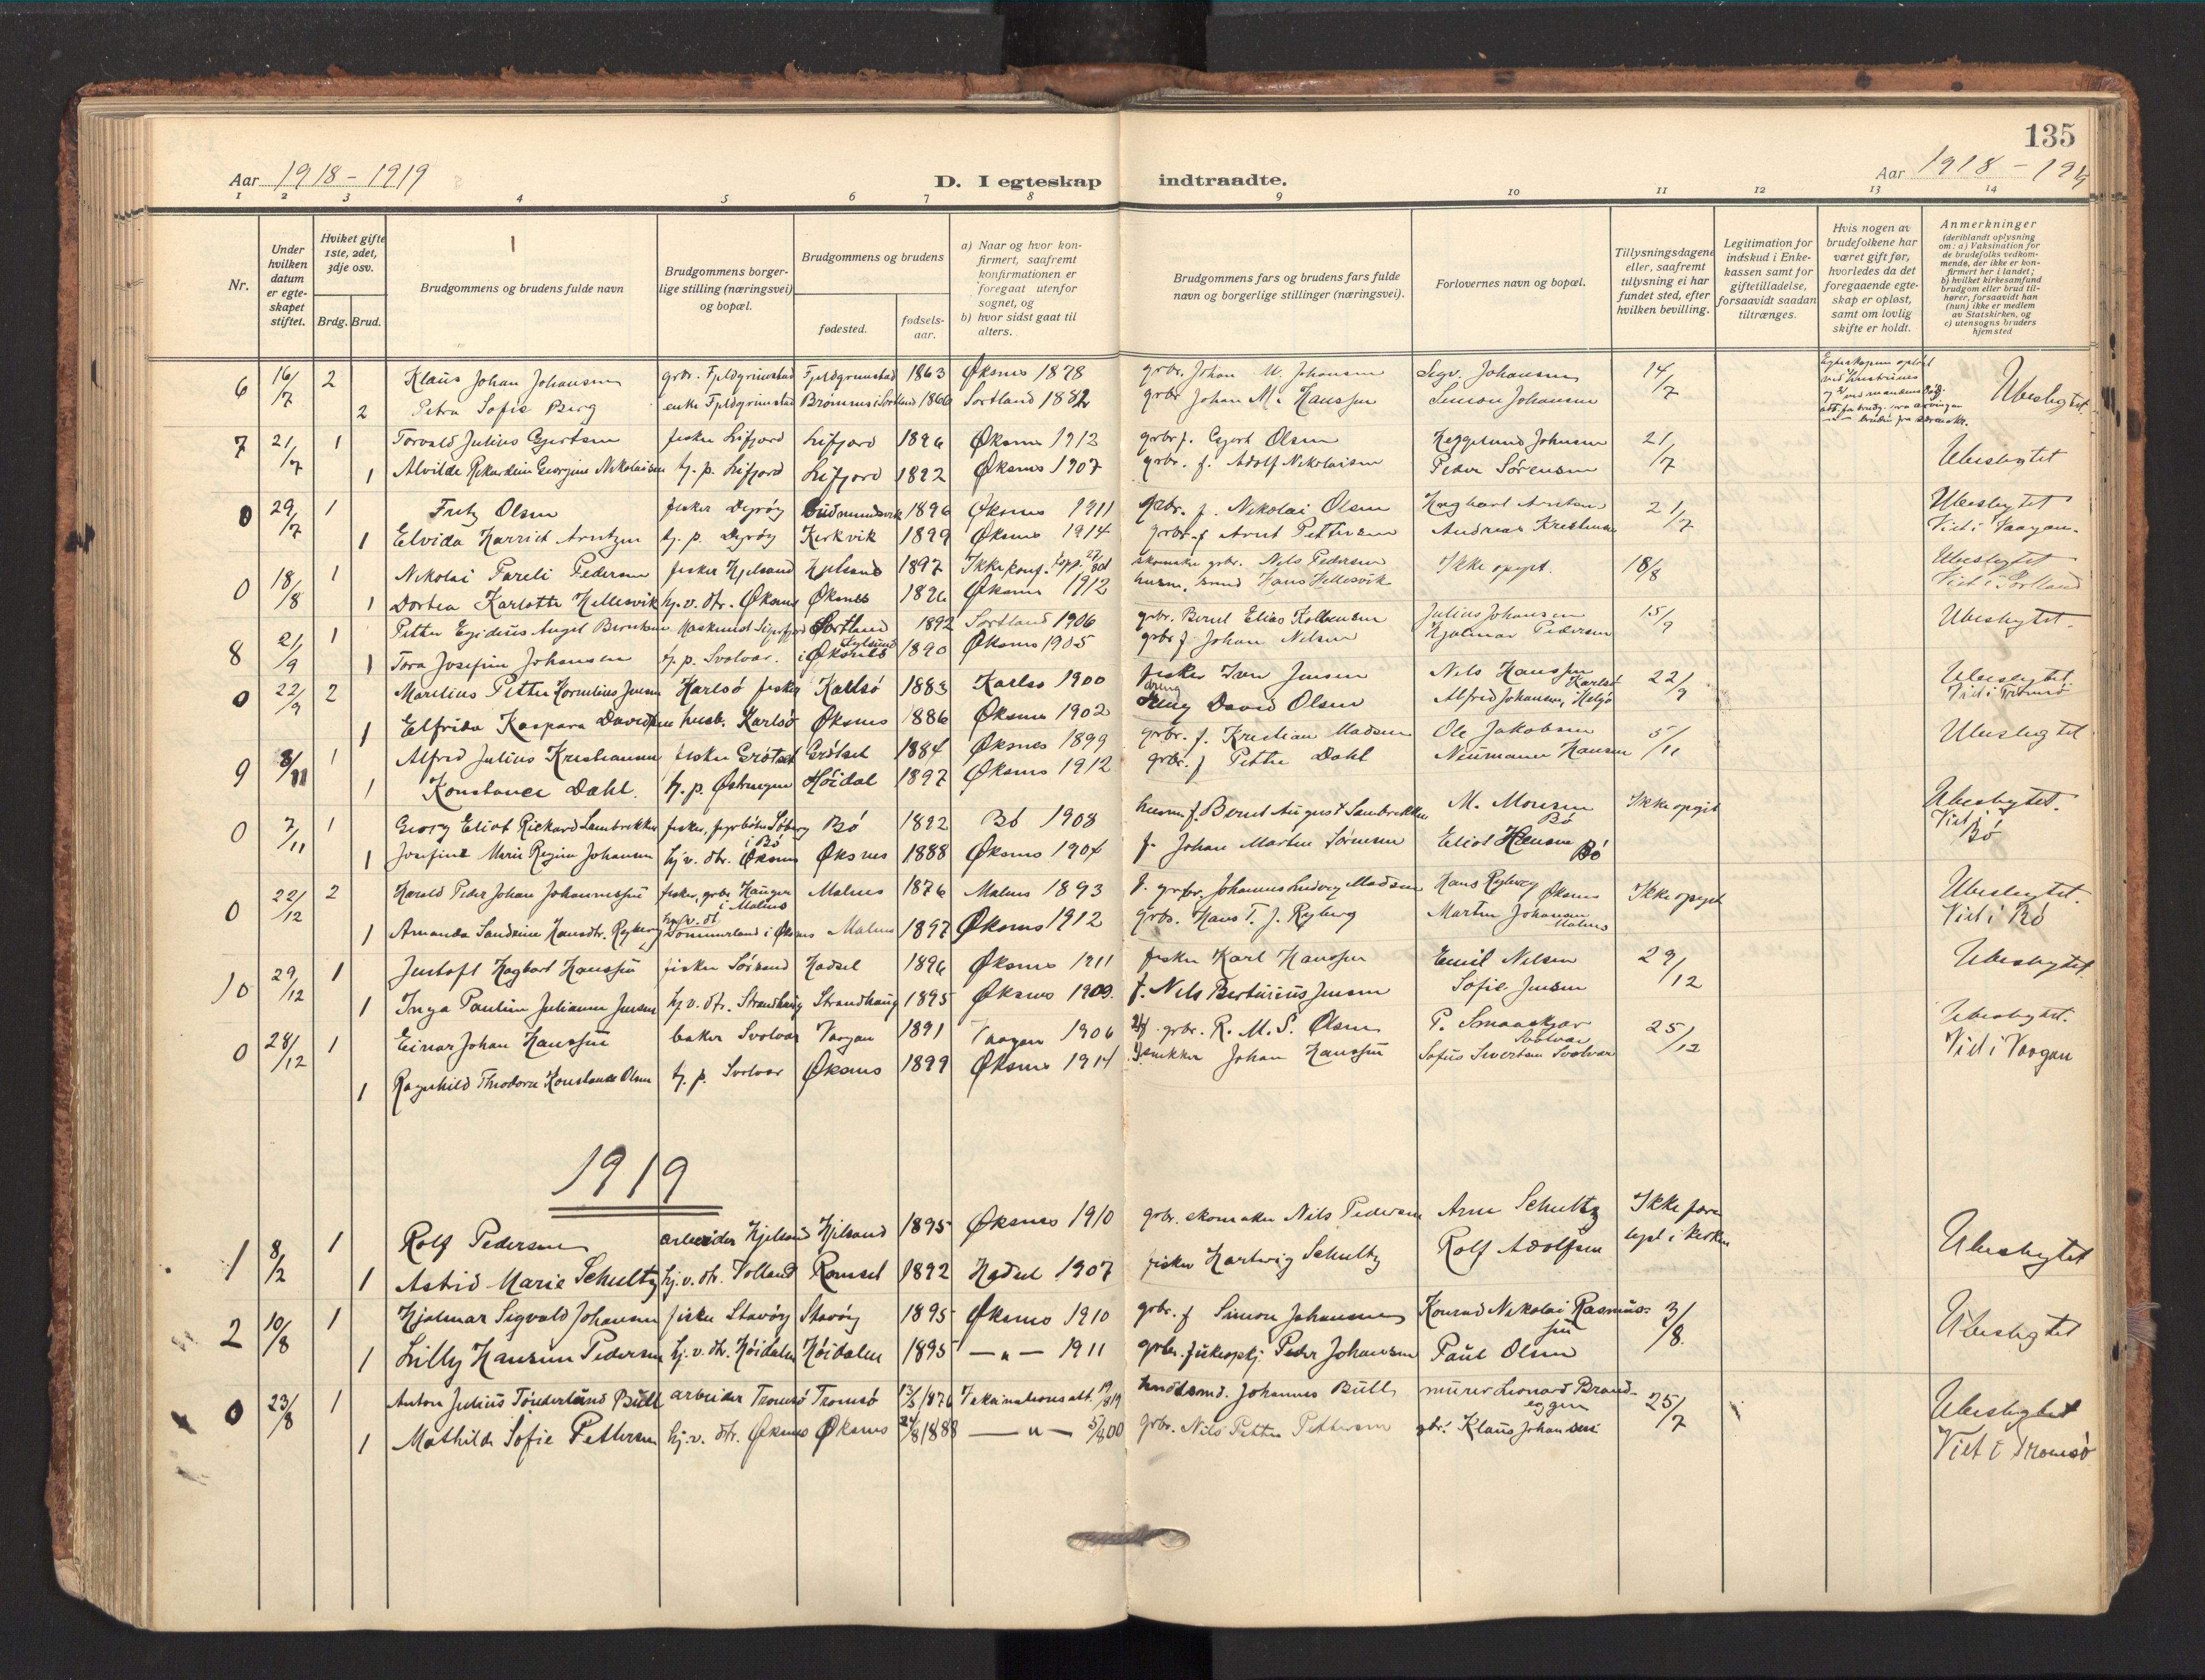 135
Aar 1918 - 1919
D. I egteskap indtraadte.
Aar 1918 - 19
1 2 3 4 5 6 7 8 9 10 11 12 13 14
Nr.
Under hvilken datum er egte- skapet stiftet.
Hvilket gifte 1ste, 2det, 3dje osv.
Brdg. Brud.
Brudgommens og brudens fulde navn
Brudgommens borger- lige stilling (næringsvei) og bopæl.
Brudgommens og brudens
fødested.
fødsels- aar.
a) Naar og hvor kon- firmert, saafremt konfirmationen er foregaat utenfor sognet, og
b) hvor sidst gaat til alters.
Brudgommens fars og brudens fars fulde navn og borgerlige stillinger (næringsvei).
Forlovernes navn og bopæl.
Tillysningsdagene eller, saafremt tillysning ei har fundet sted, efter hvilken bevilling.
Legitimation for indskud i Enke- kassen samt for giftetilladelse, forsaavidt saadan tiltrænges.
Hvis nogen av brudefolkene har været gift før, hvorledes da det foregaaende egte- skap er opløst, samt om lovlig skifte er holdt.
Anmerkninger (deriblandt oplysning om: a) Vaksination for de brudefolks vedkom- mende, der ikke er kon- firmert her i landet; b) hvilket kirkesamfund brudgom eller brud til- hører, forsaavidt han (hun) ikke er medlem av Statskirken, og c) utensogns bruders hjemsted
6 16/7 2 Klaus Johan Johansen grbr. Fjeldgrimstad Fjeldgrimstad 1863 Øksnes 1878 grbr. Johan M. Johansen Sigv. Johansen 14/7 Ubeslegtet
2 Petra Sofie Berg enke Fjeldgrimstad Sortland 1866 Sortland 1882 grbr Johan M. Hanssen Simon Johansen
7 21/7 1 Torvald Julius Gjertsen fisker Lifjord Lifjord 1896 Øksnes 1912 grbr f. Gjert Olsen Johnsen 21/7 Ubeslegtet
1 Alvilde Rikardine Georgine Nikolaisen tj. p. Lifjord Lifjord 1892 Øksnes 1907 grbr. f. Adolf Nikolaisen Peder Sörensen
0 29/7 1 Fritz Olsen fisker Dyröy Gudmundsvik 1896 Øksnes 1911 grbr. f. Nikolai Olsen Hagbart Arntzen 21/7 Ubeslegtet
1 Elvida Harriet Arntzen tj. p. Dyröy Kirkvik 1899 Øksnes 1914 grbr. f Arnt Pettersen Andreas Kristensen Viet i Vaagan.
0 18/8 1 Nikolai Pareli Pedersen fisker Hjelsand Hjelsand 1897 Ikke konf. skomaker grbr. Nils Pedersen Ikke opgit. 18/8 Ubeslegtet
1 Dortea Karlotte Hellesvik hj. v. dtr. Øksnes Øksnes 1896 Øksnes 1912 husm. smed Hans Hellesvik Viet i Sortland
8 21/9 1 Petter Egidius Angel Berntsen Maskinist Sigerfjord Sortland 1892 Sortland 1906 grbr. Bernt Elias Julius Johansen 15/9 Ubeslegtet.
1 Tora Josefine Johansen tj. p. Svolvær. i Øksnes 1890 Øksnes 1905 grbr f Johan Nilsen Hjalmar Pedersen
0 22/9 2 Marelius Petter Kornelius Jensen Karlsö fisker Karlsö 1883 Karlsö 1900 fisker Iver Jensen Nils Hanssen Karlsö 22/9 Ubeslegtet.
1 Elfrida Kaspara Davidsen husb. Karlsö Øksnes 1886 Øksnes 1902 David Olsen Alfred Johansen, Helgö Viet i Tromsö
9 8/11 1 Alfred Julius Kristiansen fisker Grötset Grötset 1884 Øksnes 1899 grbr. f. Kristian Madsen Ole Jakobsen 5/11 Ubeslegtet
1 Konstance Dahl. tj. p. Höidal 1897 Øksnes 1912 grbr. f Petter Dahl Neumann Hansen
0 7/11 1 Georg Eliot Rickard Lambrekker fisker, Söberg i Bö Bö 1892 Bö 1908 husm. f. Bernt August Lambrekker M. Monsen Bö Ikke opgit Ubeslegtet.
1 Josefine Marie Regine Johansen hj v. dtr. Øksnes Øksnes 1888 Øksnes 1904 f. Johan Martin Sörensen Eliot Hansen Bö Viet i Bö
0 22/12 2 Harald Peder Johan Johannessen fisker, grbr Haugen i Malnes Malnes 1876 Malnes 1893 f. grbr. Johannes Ludvig Madsen Hans Ryberg Øksnes Ikke opgit Ubeslegtet.
1 Amanda Sandrine Hansdtr. Ryberg hj. v. dt. Sommerland i Øksnes Malnes 1897 Øksnes 1912 grbr. Hans T. J. Ryberg Martin Johansen Malnes Viet i Bö
10 29/12 1 Justoft Hagbart Hanssen fisker Hadsel 1896 Øksnes 1911 fisker Karl Hanssen Emil Nilsen 29/12 Ubeslegtet.
1 Inga Pauline Julianne Jensen hj. v. dtr. Strandhaug Strandhaug 1895 Øksnes 1909. f. Nils Bertinius Jensen Sofie Jensen
0 28/12 1 Einar Johan Hanssen baker Svolvær Vaagan 1891 Vaagan 1906 grbr. R. M. S. Olsen P. Smaaskjær Svolvær 25/12 Ubeslegtet.
1 Ragnhild Theodora Konstanse Olsen tj. p. Svolvær Øksnes 1899 Øksnes 1914 snekker Johan Hanssen Sofus Sivertsen Svolvær Viet i Vaagan
1919
1 8/2 1 Rolf Pedersen arbeider Hjelsand Hjelsand 1895 Øksnes 1910 grbr. skomaker Nils Pedersen Arne Schultz Ikke Ubeslegtet
1 Astrid Marie Schultz hj. v. dtr. Tolland Romset 1892 Hadsel 1907 fisker Hartvig Schultz Rolf Adolfsen lyst i kirken
2 10/8 1 Hjalmar Sigvald Johansen fisker Stavöy Stavöy 1895 Øksnes 1910 grbr. f Simon Johansen Konrad Nikolai Rasmussen 3/8. Ubeslegtet
1 Lilly Hansine Pedersen hj. v. dtr. Höidalen Höidalen 1895 — " — 1911 grbr. Peder Johansen Paul Olsen
0 23/8 1 Anton Julius Tönderlund Bull arbeider Tromsö Tromsö 13/5 1876 Vaksinationsatt. Johannes Bull murer Leonard Brandeggen 25/7 Ubeslegtet
1 Mathilde Sofie Pettersen hj. v. dtr. Øksnes Øksnes 1888 — " — grbr. Nils Petter Pettersen gbr. Klaus Johansen Viet i Tromsö